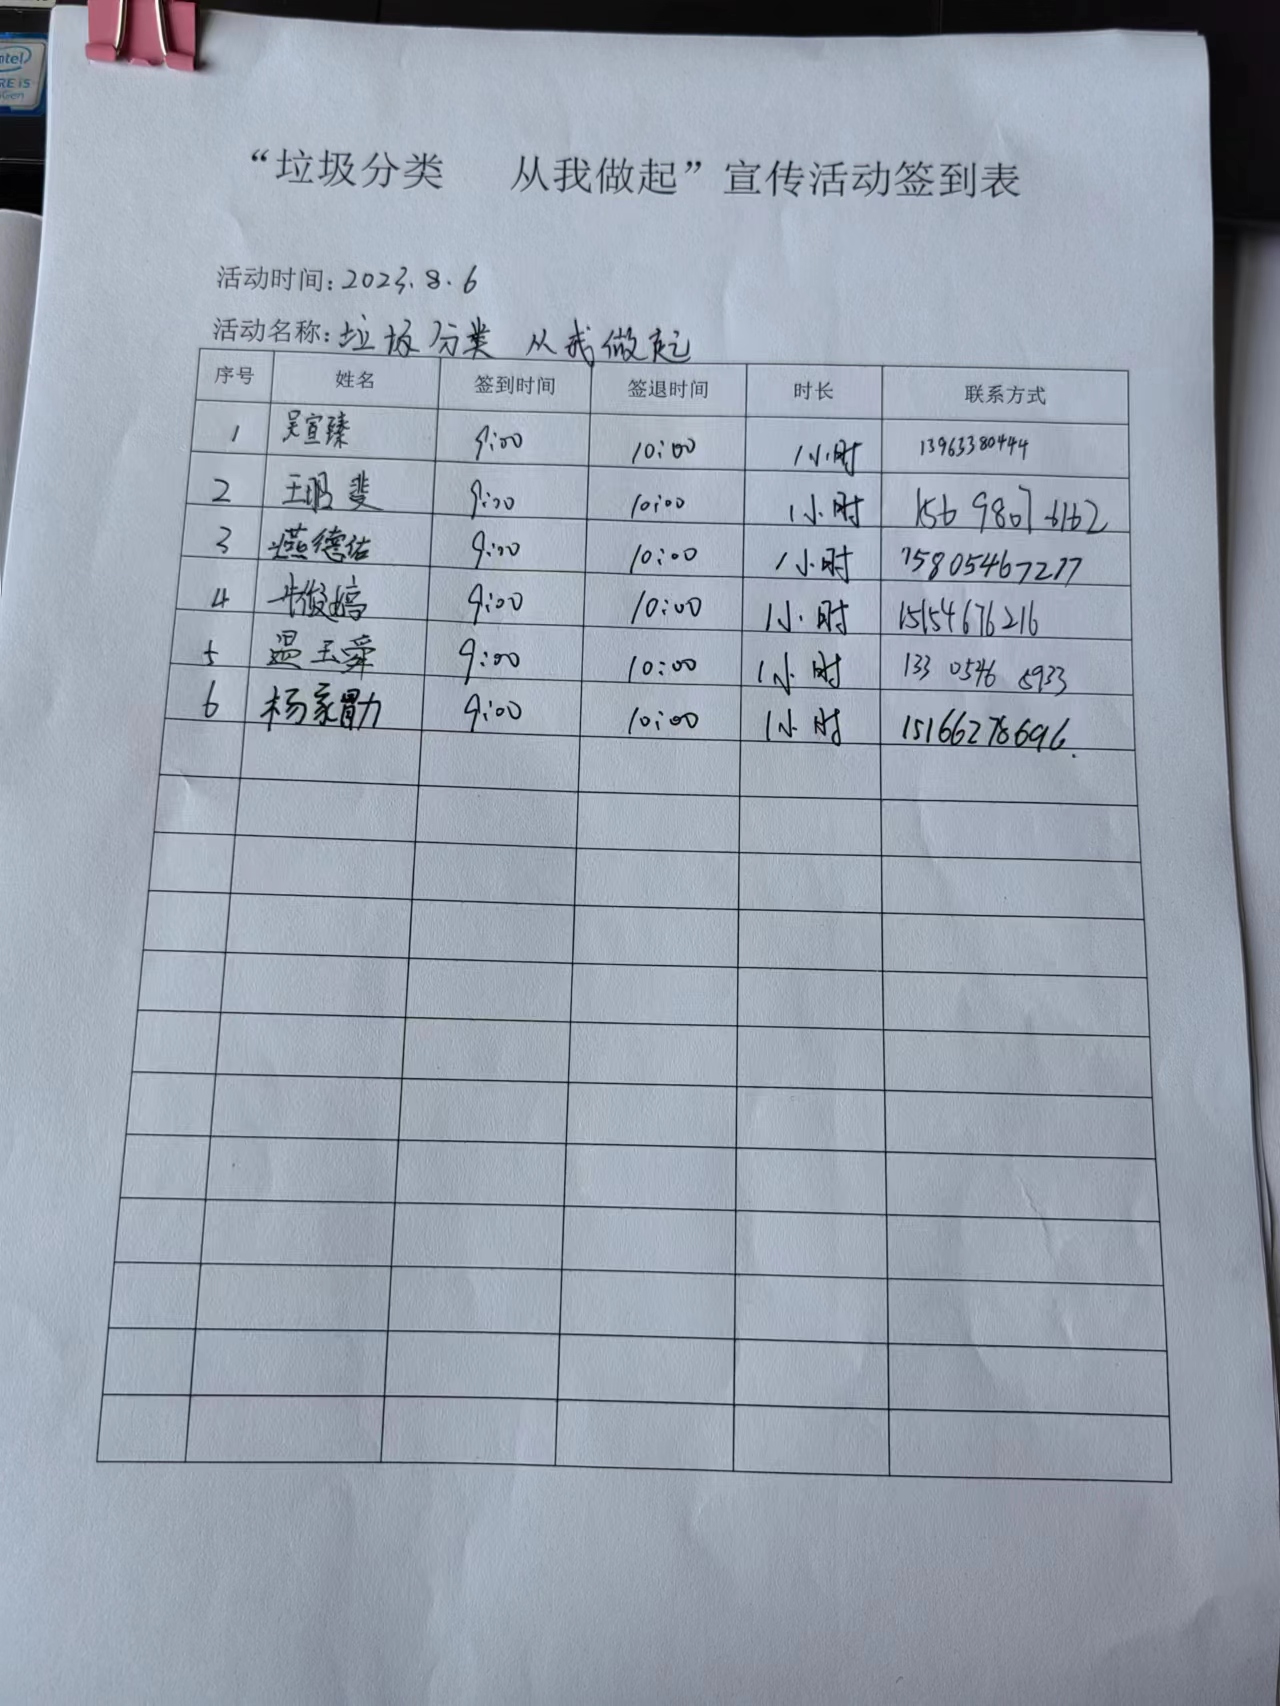 intel
“垃圾分类 从我做起”宣传活动签到表
活动时间: 2023.8.6
活动名称: 垃圾分类 从我做起
序号 姓名 签到时间 签退时间 时长 联系方式
1 吴宣臻 9:00 10:00 1小时 13963380444
2 王明斐 9:00 10:00 1小时 156 9807 6162
3 燕德佑 9:00 10:00 1小时 15805467277
4 9:00 10:00 1小时 15154676216
5 温玉舜 9:00 10:00 1小时 133 0546 5933
6 杨家勖 9:00 10:00 1小时 15166278696.